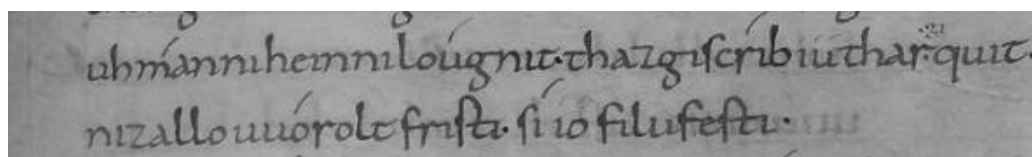 uh mánnihein nilóugnit· thaz giscríb iu thar quít·
nizallo uuórolt frísti· si io filu festi·